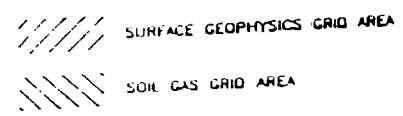 SURFACE GEOPHYSICS GRID AREA
SOIL GAS GRID AREA